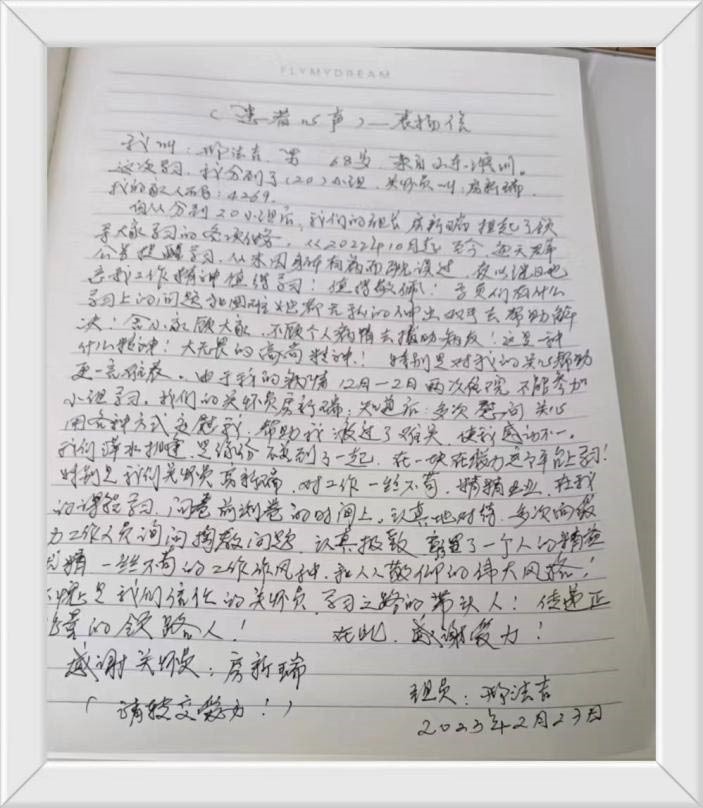 FLYMYDREAM
(患者心声)—表扬信
我叫:邢法吉,男 68岁,来自山东
这次学习,我分到了(20)小组,关怀员叫:房新瑞
我的 4269.
自从分到20小组后,我们的组长房新瑞担起了领
导大家学习的各项任务,从2022年10月起至今,每天
提醒学习,从未因身体有病而耽误过,
工作精神值得学习!值得敬佩!学员们有什么
学习上的问题和困难她都无私的伸出双手去帮助解
决!舍小家顾大家,不顾个人病情去援助病友!这是一种
什么精神!大无畏的高尚精神!特别是对我的关心帮助
更 由于我的病情12月—2月两次住院,不能参加
小组学习,我们的关怀员房新瑞,知道后,多次慰问关心
用各种方式安慰我,帮助我渡过了难关,使我感动不一。
我们萍水相逢,是缘份 到了一起,在一块在爱力这个平台上学习!
特别是我们关怀员房新瑞,对工作一丝不苟,兢兢业业,在我
的课程学习,问卷 的时间上,认真地对待,多次向爱
力工作人员询问 问题,认真 了一个人的精益
求精一丝不苟的工作作风 和人人敬仰的伟大风格!
她是我们 的关怀员,学习之路的带头人!传递正
能量的领路人! 在此,感谢爱力!
感谢关怀员:房新瑞
组员:邢法吉
(请转交爱力!)
2023年2月23日